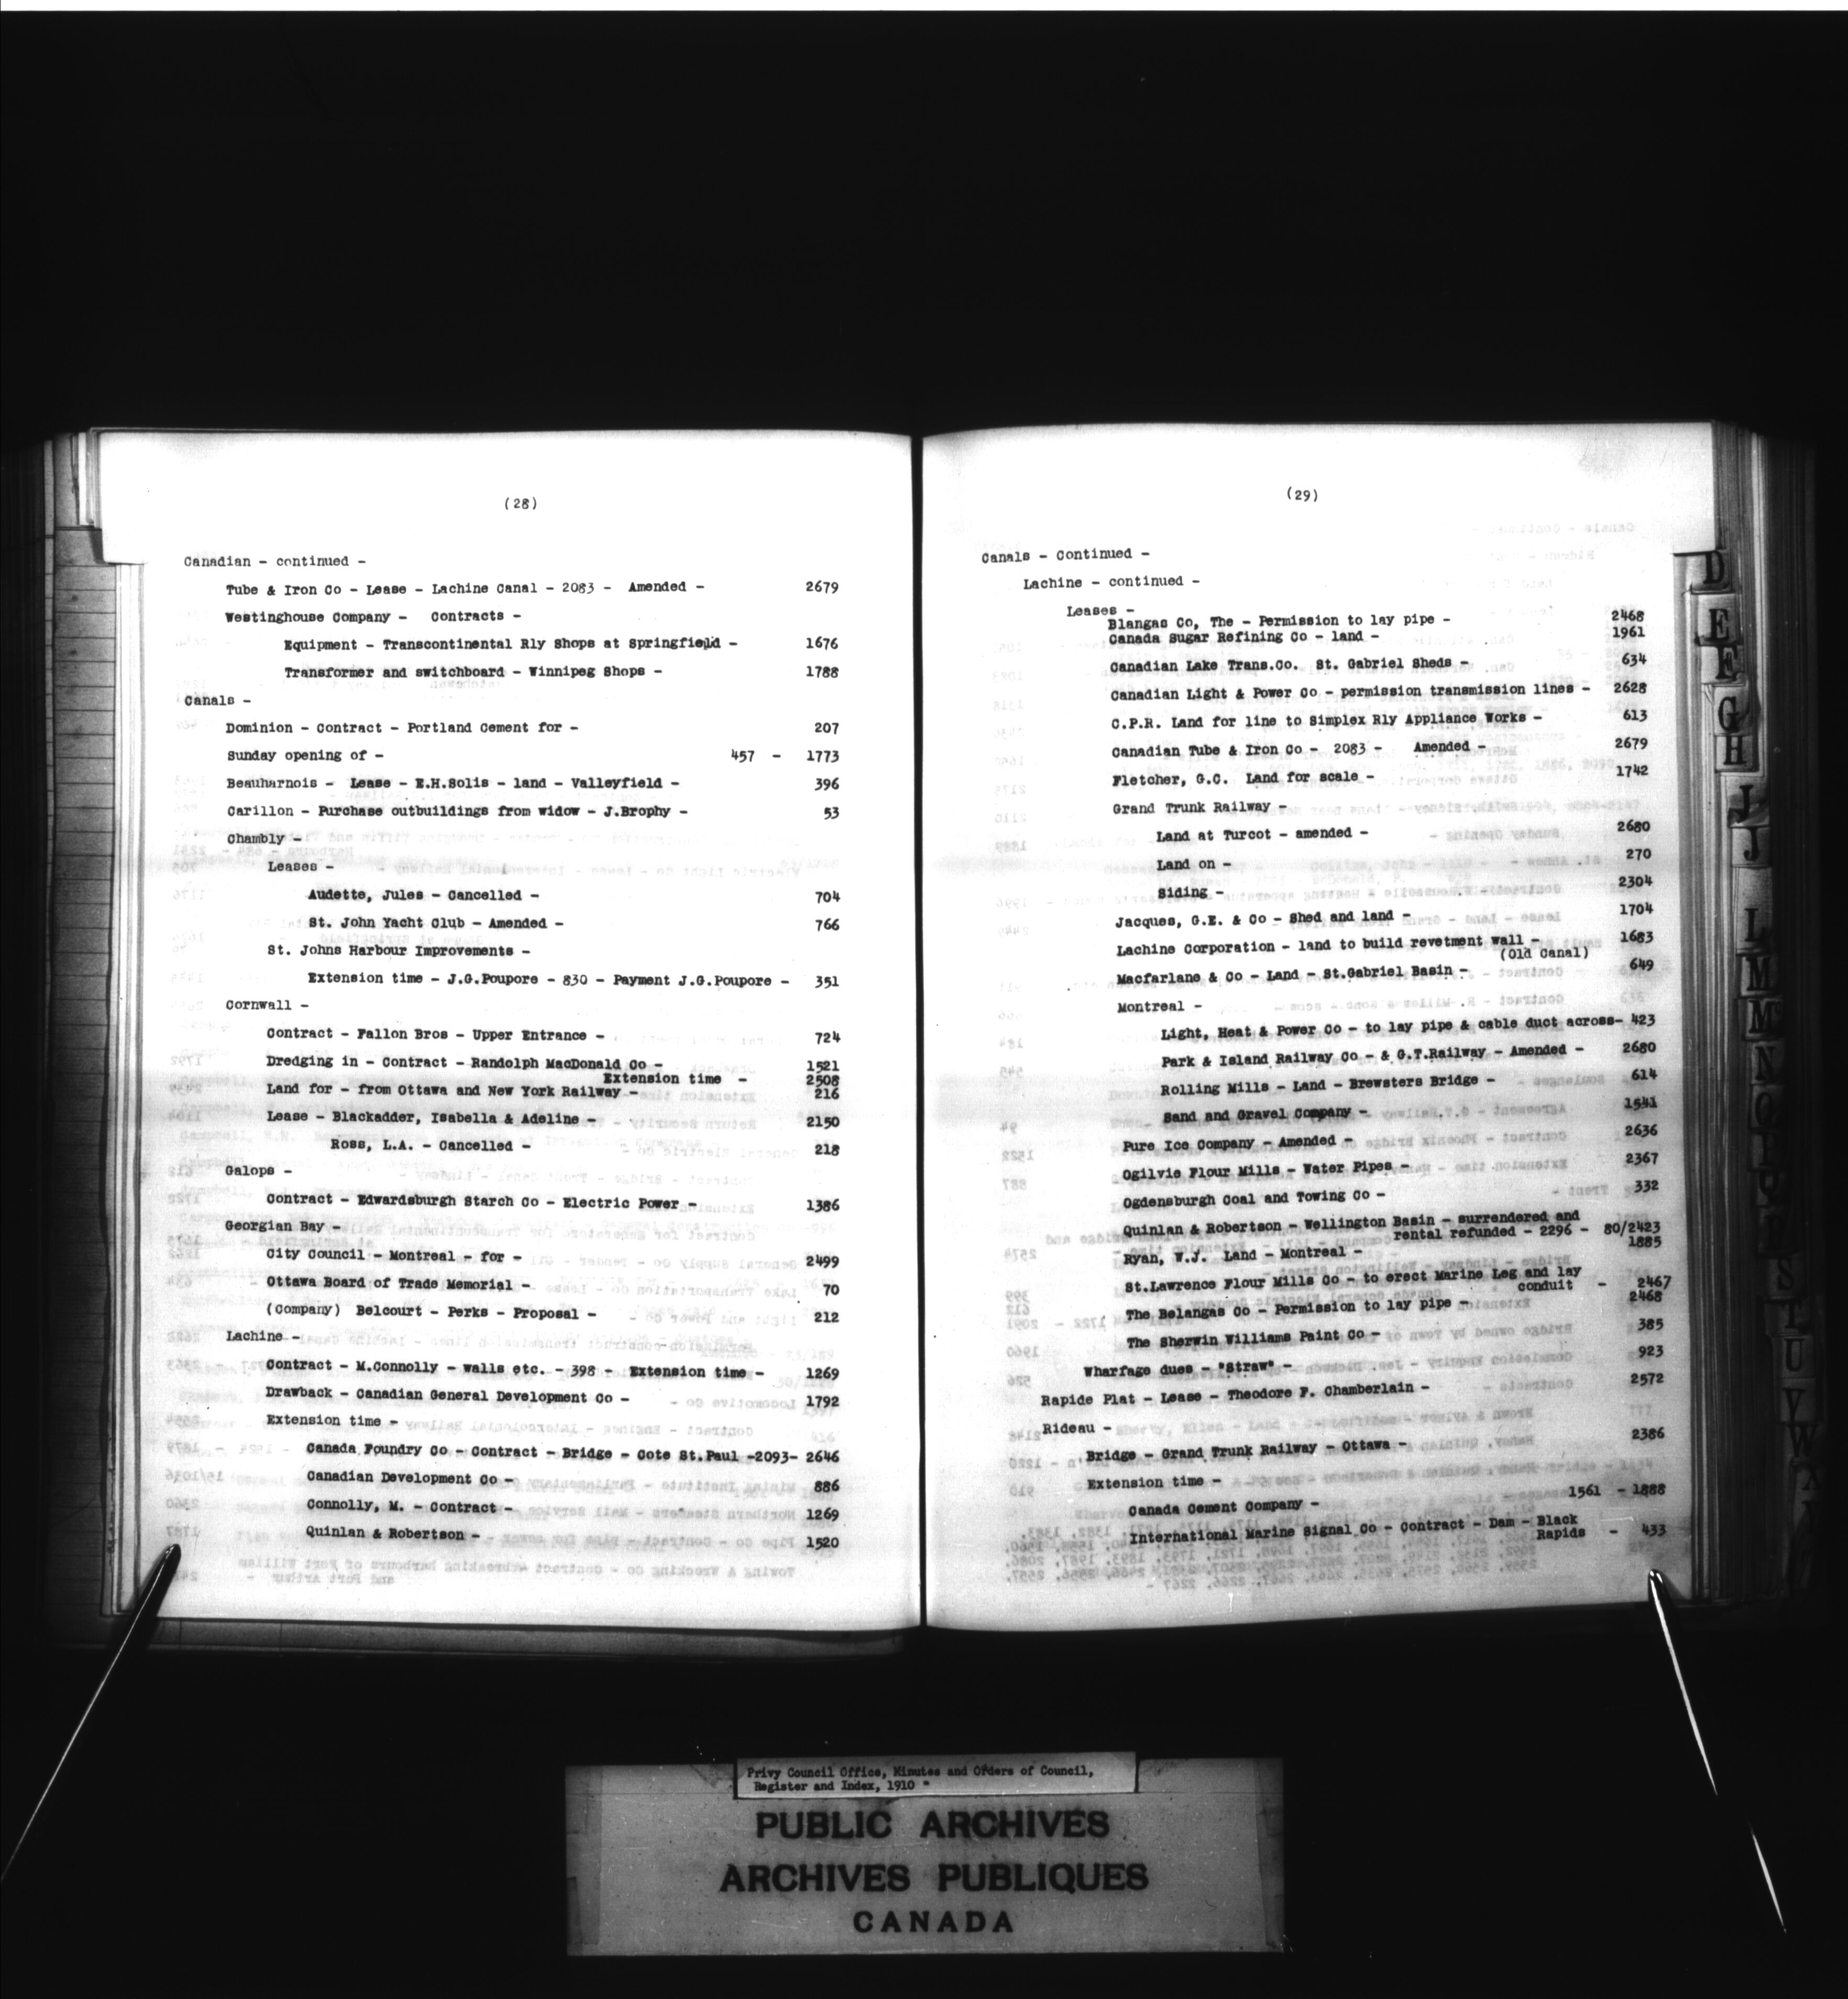 (28)
Canadian - continued -
Tube & Iron Co - Lease - Lachine Canal - 2083 - Amended - 2679
Westinghouse Company - Contracts -
Equipment - Transcontinental Rly Shops at Springfield - 1676
Transformer and switchboard - Winnipeg Shops - 1788
Canals -
Dominion - Contract - Portland Cement for - 207
Sunday opening of - 457 - 1773
Beauharnois - Lease - E.H.Solis - land - Valleyfield - 396
Carillon - Purchase outbuildings from widow - J.Brophy - 53
Chambly -
Leases -
Audette, Jules - Cancelled - 704
St. John Yacht Club - Amended - 766
St. Johns Harbour Improvements -
Extension time - J.G.Poupore - 830 - Payment J.G.Poupore - 351
Cornwall -
Contract - Fallon Bros - Upper Entrance - 724
Dredging in - Contract - Randolph MacDonald Co - 1521
Extension time - 2508
Land for - from Ottawa and New York Railway - 216
Lease - Blackadder, Isabella & Adeline - 2150
Ross, L.A. - Cancelled - 218
Galops -
Contract - Edwardsburgh Starch Co - Electric Power - 1386
Georgian Bay -
City Council - Montreal - for - 2499
Ottawa Board of Trade Memorial - 70
(Company) Belcourt - Perks - Proposal - 212
Lachine -
Contract - M.Connolly - walls etc. - 398 - Extension time - 1269
Drawback - Canadian General Development Co - 1792
Extension time -
Canada Foundry Co - Contract - Bridge - Cote St.Paul -2093- 2646
Canadian Development Co - 886
Connolly, M. - Contract - 1269
Quinlan & Robertson - 1520
(29)
Canals - Continued -
Lachine - continued -
Leases -
Blangas Co, The - Permission to lay pipe - 2468
Canada Sugar Refining Co - land - 1961
Canadian Lake Trans.Co. St. Gabriel Sheds - 634
Canadian Light & Power Co - permission transmission lines - 2628
C.P.R. Land for line to Simplex Rly Appliance Works - 613
Canadian Tube & Iron Co - 2083 - Amended - 2679
Fletcher, G.C. Land for scale - 1742
Grand Trunk Railway -
Land at Turcot - amended - 2680
Land on - 270
Siding - 2304
Jacques, G.E. & Co - Shed and land - 1704
Lachine Corporation - land to build revetment wall - 1683
(Old Canal)
Macfarlane & Co - Land - St.Gabriel Basin - 649
Montreal -
Light, Heat & Power Co - to lay pipe & cable duct across- 423
Park & Island Railway Co - & G.T.Railway - Amended - 2680
Rolling Mills - Land - Brewsters Bridge - 614
Sand and Gravel Company - 1541
Pure Ice Company - Amended - 2636
Ogilvie Flour Mills - Water Pipes - 2367
Ogdensburgh Coal and Towing Co - 332
Quinlan & Robertson - Wellington Basin - surrendered and
rental refunded - 2296 - 80/2423
Ryan, W.J. Land - Montreal - 1885
St.Lawrence Flour Mills Co - to erect Marine Leg and lay
conduit - 2467
The Belangas Co - Permission to lay pipe - 2468
The Sherwin Williams Paint Co - 385
Wharfage dues - "Straw" - 923
Rapide Plat - Lease - Theodore F. Chamberlain - 2572
Rideau -
Bridge - Grand Trunk Railway - Ottawa - 2386
Extension time -
Canada Cement Company - 1561 - 1888
International Marine Signal Co - Contract - Dam - Black
Rapids - 433
D
E
F
G
H
J
J
L
M
M
N
O
P
S
T
U
V
W
Privy Council Office, Minutes and Orders of Council,
Register and Index, 1910 "
PUBLIC ARCHIVES
ARCHIVES PUBLIQUES
CANADA